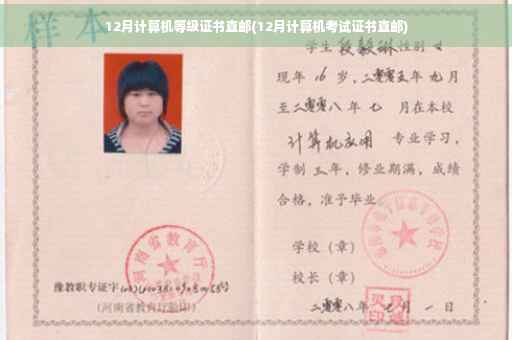 12月计算机等级证书直邮(12月计算机考试证书直邮)
样本
学生段毅琳性别女
现年16岁，二零零五年九月
至二零零八年七月在本校
计算机应用 专业学习，
学制三年，修业期满，成绩
合格，准予毕业。
学校（章）
校长（章）
二零零八年 月一日
河南省教育厅
豫教职专证字
(河南省教育厅验印)